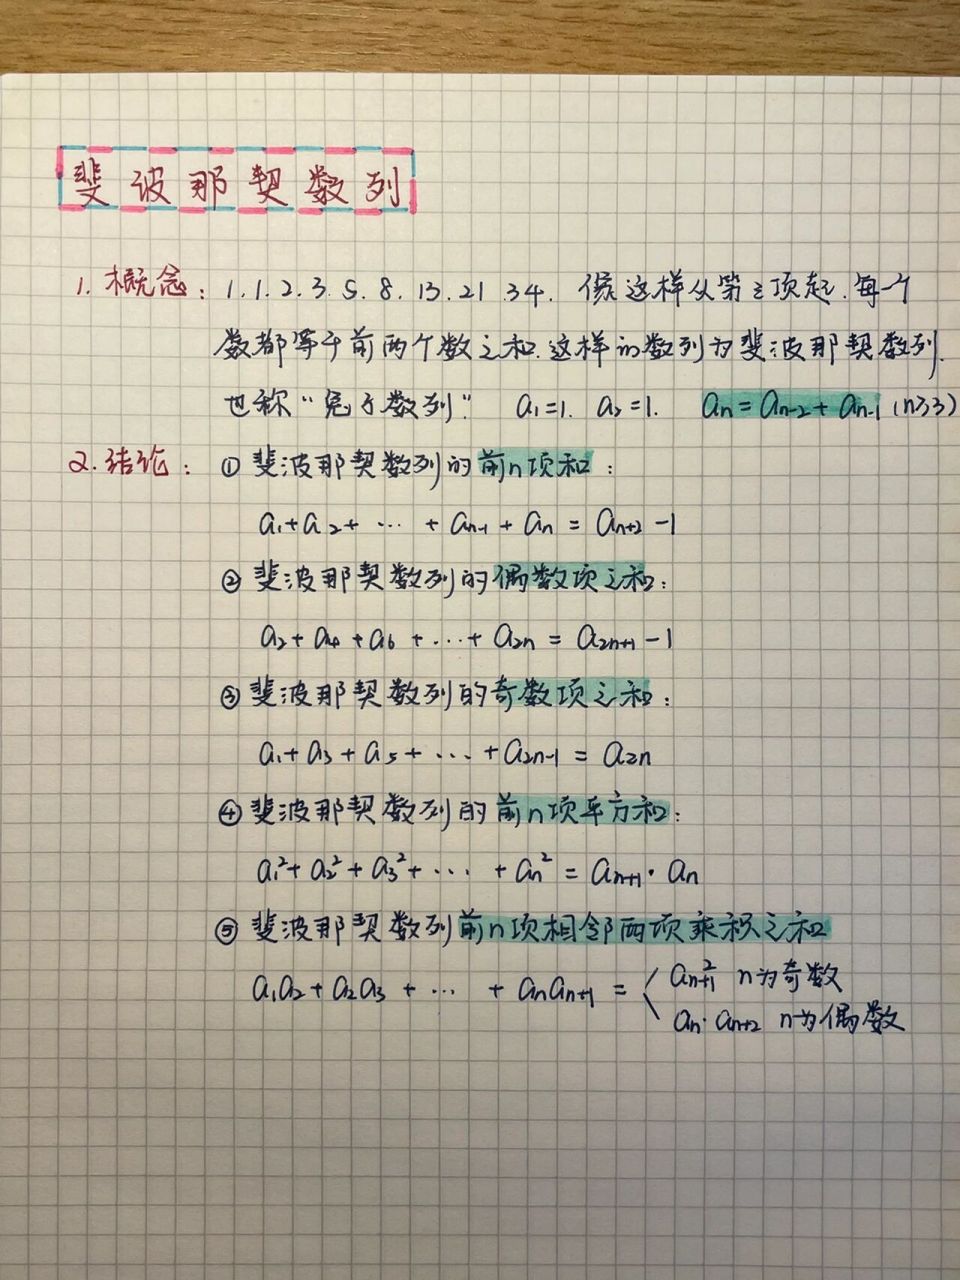 斐波那契数列
1. 概念：1.1.2.3.5.8.13.21.34. 像这样从第三项起.每一个
数都等于前两个数之和.这样的数列为斐波那契数列.
也称“兔子数列” a₁=1. a₂=1. aₙ=aₙ₋₂+aₙ₋₁ (n≥3)
2. 结论：① 斐波那契数列的前n项和：
a₁+a₂+ ··· +aₙ₋₁+aₙ = aₙ₊₂-1
② 斐波那契数列的偶数项之和：
a₂+a₄+a₆+···+a₂ₙ = a₂ₙ₊₁-1
③ 斐波那契数列的奇数项之和：
a₁+a₃+a₅+···+a₂ₙ₋₁ = a₂ₙ
④ 斐波那契数列的前n项平方和：
a₁²+a₂²+a₃²+···+aₙ² = aₙ₊₁·aₙ
⑤ 斐波那契数列前n项相邻两项乘积之和
a₁a₂+a₂a₃+···+aₙaₙ₊₁ = { aₙ₊₁² n为奇数
aₙ·aₙ₊₂ n为偶数